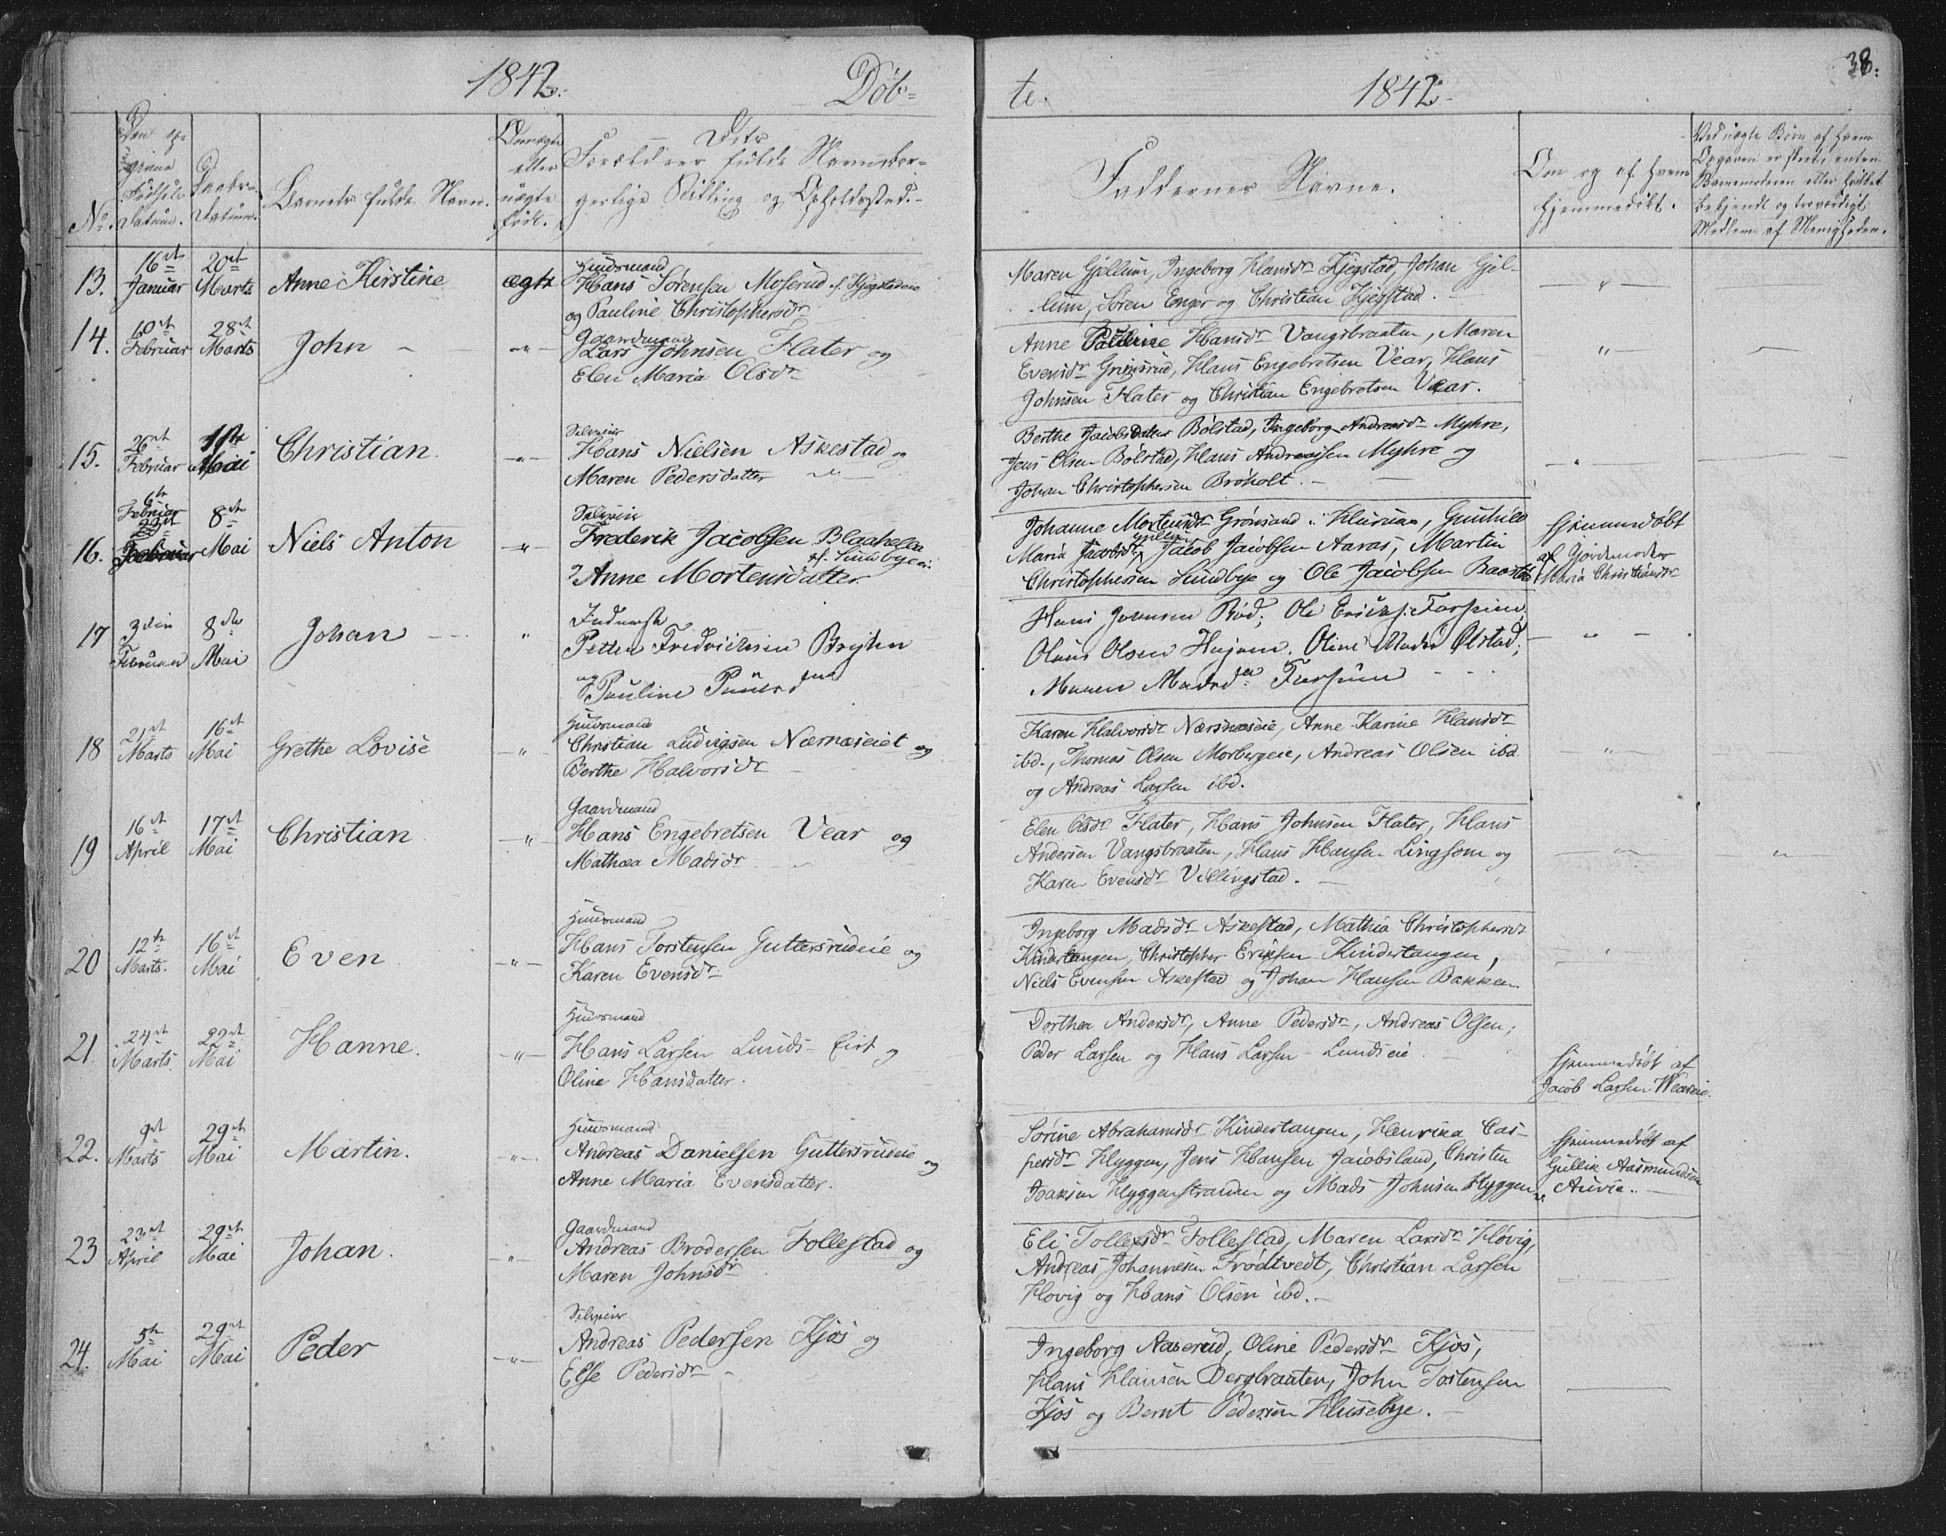 1842. Døb-
te. 1842. 38.
No.
Den op-
givne
Fødsels
Datum.
Daabs-
Datum.
Barnets fulde Navn.
Om ægte
eller
uægte
født.
Forældres fulde Navne, Bor-
gerlige Stilling og Opholdssted.
Faddernes Navne.
Om og af hvem
hjemmedøbt.
Ved uægte Børn af hvem
Opgaven er skeet, enten
Barnemoderen eller hvilket
bekjendt og troværdigt
Medlem af Menigheden.
13. 16de Januar 20de Marts Anne Kirstine ægte
Huusmand
Hans Sørensen Moserud
og Pauline Christophersdr
Maren Gjellum, Ingeborg Hansdr Kjegstad, Johan Gjel-
lum, Søren Enger og Christian Kjegstad.
14. 10de Februar 28de Marts John
Gaardmand
Lars Johnsen Flater og
Elen Maria Olsdr
Anne Hansdr Vangsbraaten, Maren
Evensdr Grimsrud, Hans Engebretsen Vear, Hans
Johnsen Flater og Christian Engebretsen Vear.
15. 26de Februar 1ste Mai Christian
Selveier
Hans Nielsen Askestad og
Maren Pedersdatter
Berthe Jacobsdatter Bølstad, Ingeborg Andreasdr Myhre,
Jens Olsen Bølstad, Hans Andreassen Myhre og
Johan Christophersen Brøholt.
16. 6te Februar 8de Mai Niels Anton
Selveier
Frederik Jacobsen
Anne Mortensdatter
Johanne Mortensdr Grønsand i Hurum, Gunhild
Maria Jacobsdr, Jacob Jacobsen Aaras, Martin
Christophersen Lundbye og Ole Jacobsen
Hjemmedøbt
af Gjordemoder
Maria Christiansdr
17 3die Februar 8de Mai Johan
Inderst
Petter Fredrichsen
og Pauline
Hans Jensen Rød, Ole
Olaus Olsen Høgen, Oline Mads Ølstad;
Maren Madsdr
18 21de Marts 16de Mai Grethe Lovise
Huusmand
Christian Ludvigsen Nærnæseiet og
Berthe Halvorsdr
Karen Halvorsdr Nærsnæseie, Anne Karine Hansdr
ibd., Thomas Olsen Morbergeie, Andreas Olsen ibd
og Andreas Larsen ibd.
19 16de April 17de Mai Christian
Gaardmand
Hans Engebretsen Vear og
Mathea Madsdr
Elen Olsdr Flater, Hans Johnsen Flater, Hans
Andersen Vangsbraaten, Hans Hansen Lingsom og
Karen Evensdr Villingstad.
20 12te Marts. 16de Mai Even
Huusmand
Hans Torstensen Guttersrudeie og
Karen Evensdr
Ingeborg Madsdr Askestad, Mathia Christophersdr
Kindertangen, Christopher Eriksen Kindertangen,
Niels Evensen Askestad og Johan Hansen Bakken
21. 24de Marts. 22de Mai Hanne.
Huusmand
Hans Larsen Lunds-Eiet og
Oline Hansdatter.
Dorthea Andersdr, Anne Pedersdr, Andreas Olsen;
Peder Larsen og Hans Larsen Lundseie.
Hjemmedøbt af
Jacob Larsen Weareie.
22. 9de Marts 29de Mai Martin.
Huusmand
Andreas Danielsen Guttersrudeie og
Anne Maria Evensdatter.
Sørine Abrahamsdr Kindertangen, Henrika Cas-
persdr Hyggen, Jens Hansen Jacobsland, Christen
Isaksen Hyggenstranden og Mads Johnsen Hyggen
Hjemmedøbt af
Gullik Aasmundsen
Auvie.
23 23de April 29de Mai Johan.
Gaardmand
Andreas Brodersen Follestad og
Maren Johnsdr
Eli Tollefsdr Follestad, Maren Larsdr Høvig,
Andreas Johannesen Frødtvedt, Christian Larsen
Høvig og Hans Olsen ibd.
24. 5te Mai 29de Mai Peder
Selveier
Andreas Pedersen Kjos og
Else Pedersdr
Ingeborg Aaserud, Oline Pedersdr Kjos,
Hans Hansen Bergbraaten, John Tostensen
Kjos og Bernt Pedersen Husebye.